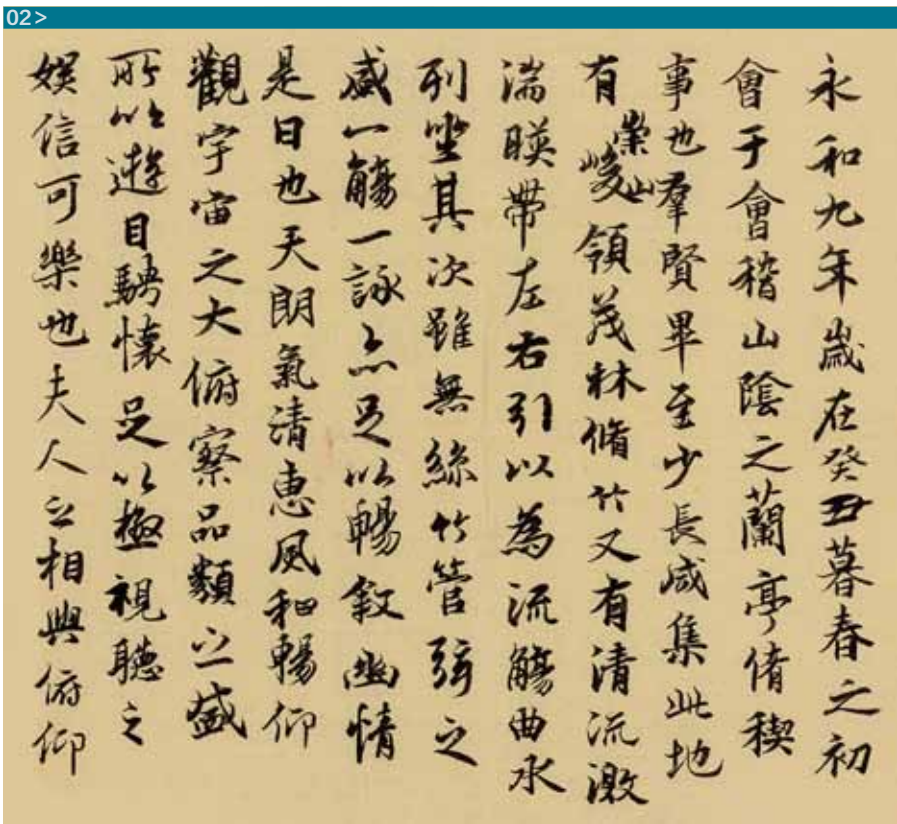 02>
永和九年歲在癸丑暮春之初
會于會稽山陰之蘭亭脩稧
事也羣賢畢至少長咸集此地
有崇山峻領茂林脩竹又有清流激
湍暎帶左右引以為流觴曲水
列坐其次雖無絲竹管弦之
盛一觴一詠亦足以暢敘幽情
是日也天朗氣清惠風和暢仰
觀宇宙之大俯察品類之盛
所以遊目騁懷足以極視聽之
娛信可樂也夫人之相與俯仰